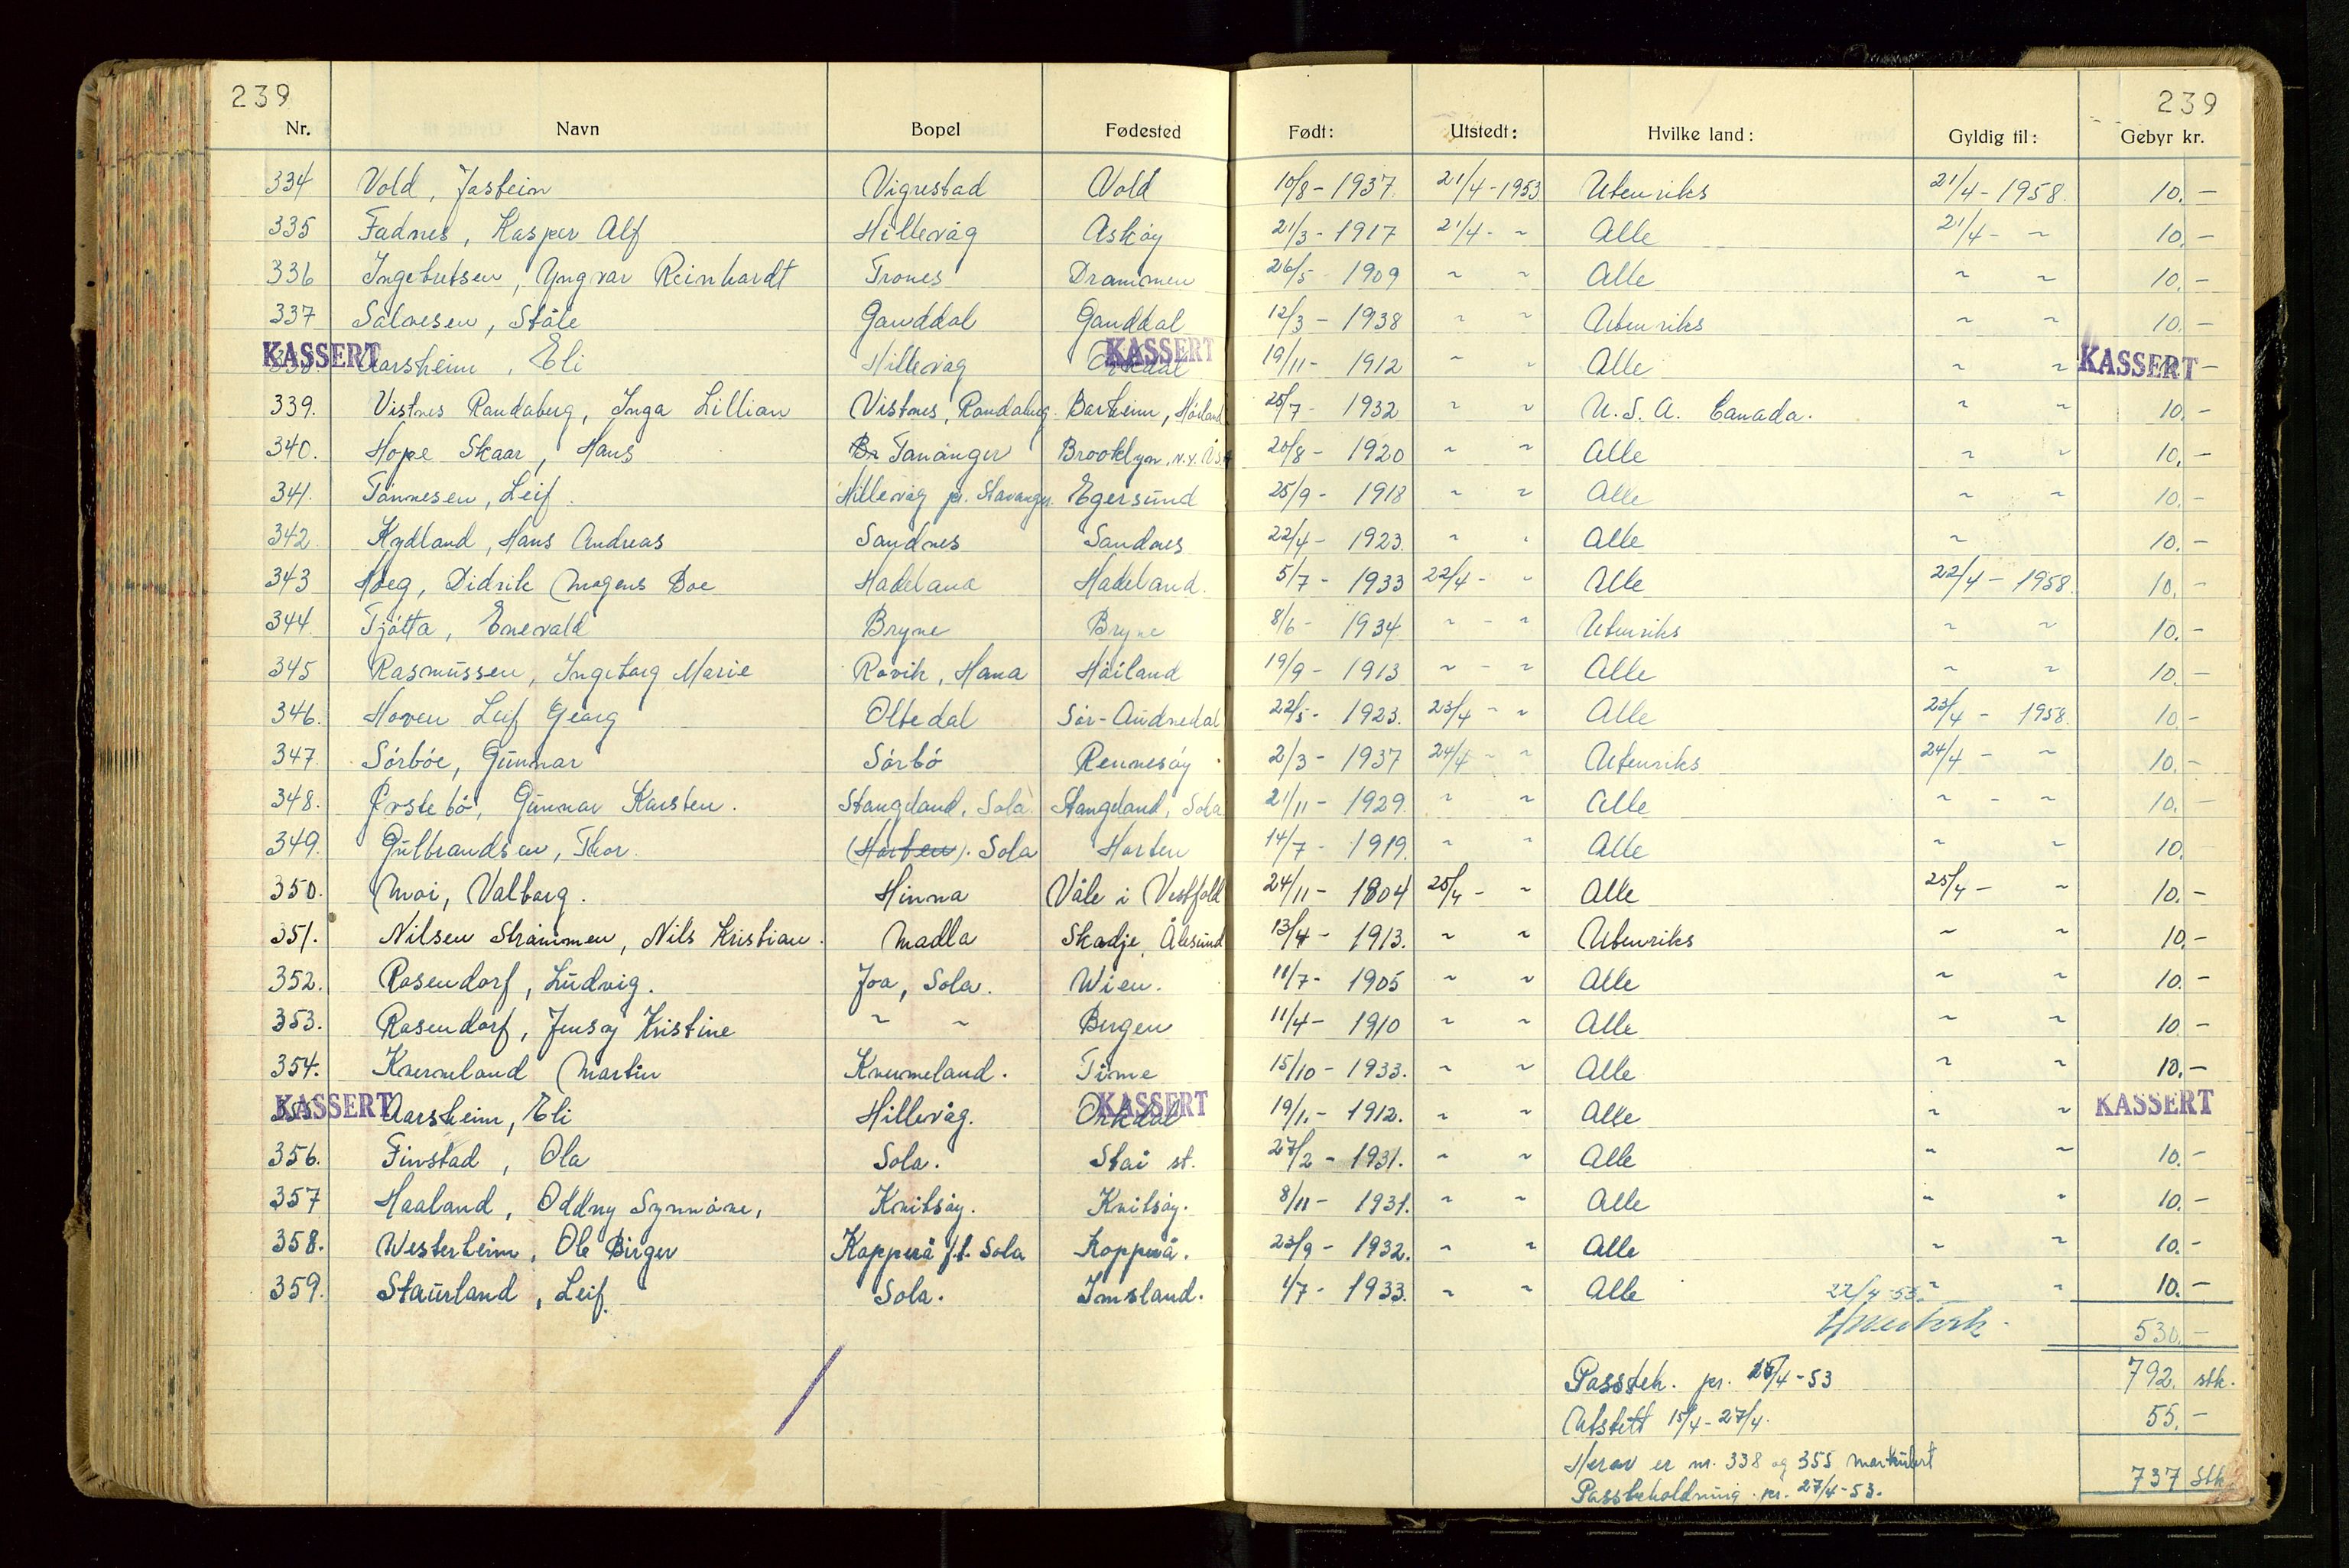 239 239
Nr. Navn Bopel Fødested Født: Utstedt: Hvilke land: Gyldig til: Gebyr kr.
334 Vold, Jostein Vigrestad Vold 10/8 - 1937. 21/4 - 1953 Utenriks 21/4 - 1958. 10. -
335 Fadnes, Kasper Alf Hillevåg Askøy 21/3 - 1917 21/4 - ~ Alle 21/4 - ~ 10. -
336 Ingebretsen, Yngvar Reinhardt Trones Drammen 26/5 1909 ~ ~ Alle ~ ~ 10. -
337 Salvesen, Ståle Ganddal Ganddal 12/3 - 1938 ~ ~ Utenriks ~ ~ 10. -
KASSERT 338. Aarsheim, Eli Hillevåg Orkdal KASSERT 19/11 - 1912 ~ ~ Alle ~ ~ KASSERT -
339. Vistnes Randaberg, Inga Lillian Vistnes, Randaberg. Barheim, Høiland 25/7 - 1932 ~ ~ U.S.A. Canada. ~ ~ 10. -
340. Hope Skaar, Hans Br Tananger Brooklyn, N.Y. 20/8 - 1920 ~ ~ Alle ~ ~ 10. -
341. Tønnesen, Leif. Hillevåg pr. Stavanger. Egersund 25/9 - 1918 ~ ~ Alle ~ ~ 10. -
342 Kydland, Hans Andreas Sandnes Sandnes 22/4 - 1923. ~ ~ Alle ~ 10. -
343 Høeg, Didrik Mogens Boe Hadeland Hadeland. 5/7 - 1933 22/4 - ~ Alle 22/4 - 1958. 10. -
344. Tjøtta, Enevald Bryne Bryne 8/6 - 1934 ~ - ~ Utenriks ~ ~ 10. -
345 Rasmussen, Ingeborg Marie Rovik, Hana Høiland 19/9 - 1913 ~ - ~ Alle ~ ~ 10. -
346. Hoven Leif Georg Oltedal Sør-Audnedal 22/5 - 1923. 23/4 - ~ Alle 23/4 - 1958. 10 -
347. Sørbøe, Gunnar Sørbø Rennesøy 2/3 - 1937 24/4 - ~ Utenriks 24/4 - ~ 10. -
348. Ørstebø, Gunnar Karsten. Stangeland, Sola Stangeland, Sola 21/11 - 1929. ~ ~ Alle ~ - ~ 10. -
349. Gulbrandsen, Thor. (Horten). Sola Horten 14/7 - 1919. ~ ~ Alle ~ ~ 10.
350. Moi, Valborg. Hinna Våle i Vestfold 24/11 - 1904 25/4 - ~ Alle 25/4 - ~ 10. -
351. Nilsen Strømmen, Nils Kristian. Madla Skodje, Ålesund 13/4 - 1913. ~ ~ Utenriks ~ ~ 10. -
352. Rosendorf, Ludvig. Joa, Sola. Wien. 11/7 - 1905 ~ ~ Alle ~ ~ 10. -
353. Rosendorf, Jensoy Kristine ~ ~ Bergen 11/4 - 1910 ~ ~ Alle ~ ~ 10 -
354. Kverneland Martin Kverneland. Time 15/10 - 1933. ~ ~ Alle ~ ~ 10. -
KASSERT 355 Aarsheim, Eli Hillevåg. Orkdal KASSERT 19/1. - 1912. ~ ~ Alle ~ ~ KASSERT
356. Finstad, Ola Sola. Stai st. 27/2 - 1931. ~ ~ Alle ~ ~ 10. -
357 Haaland, Oddny Synnøve, Kvitsøy. Kvitsøy. 8/11 - 1931. ~ ~ Alle ~ ~ 10. -
358. Westerheim, Ole Birger Kopperå f.t. Sola Kopperå. 23/9 - 1932. ~ ~ Alle ~ ~ 10. -
359. Staurland, Leif. Sola. Imsland. 1/7 - 1933. ~ ~ Alle ~ ~ 10. -
27/4 - 53.
530. -
Passbeh. pr. 25/4 - 53 792. stk.
Utstedt 15/4 - 27/4. 55. -
Herav er nr. 338 og 355 makulert
Passbeholdning. pr. 27/4 - 53. 737 Stk.